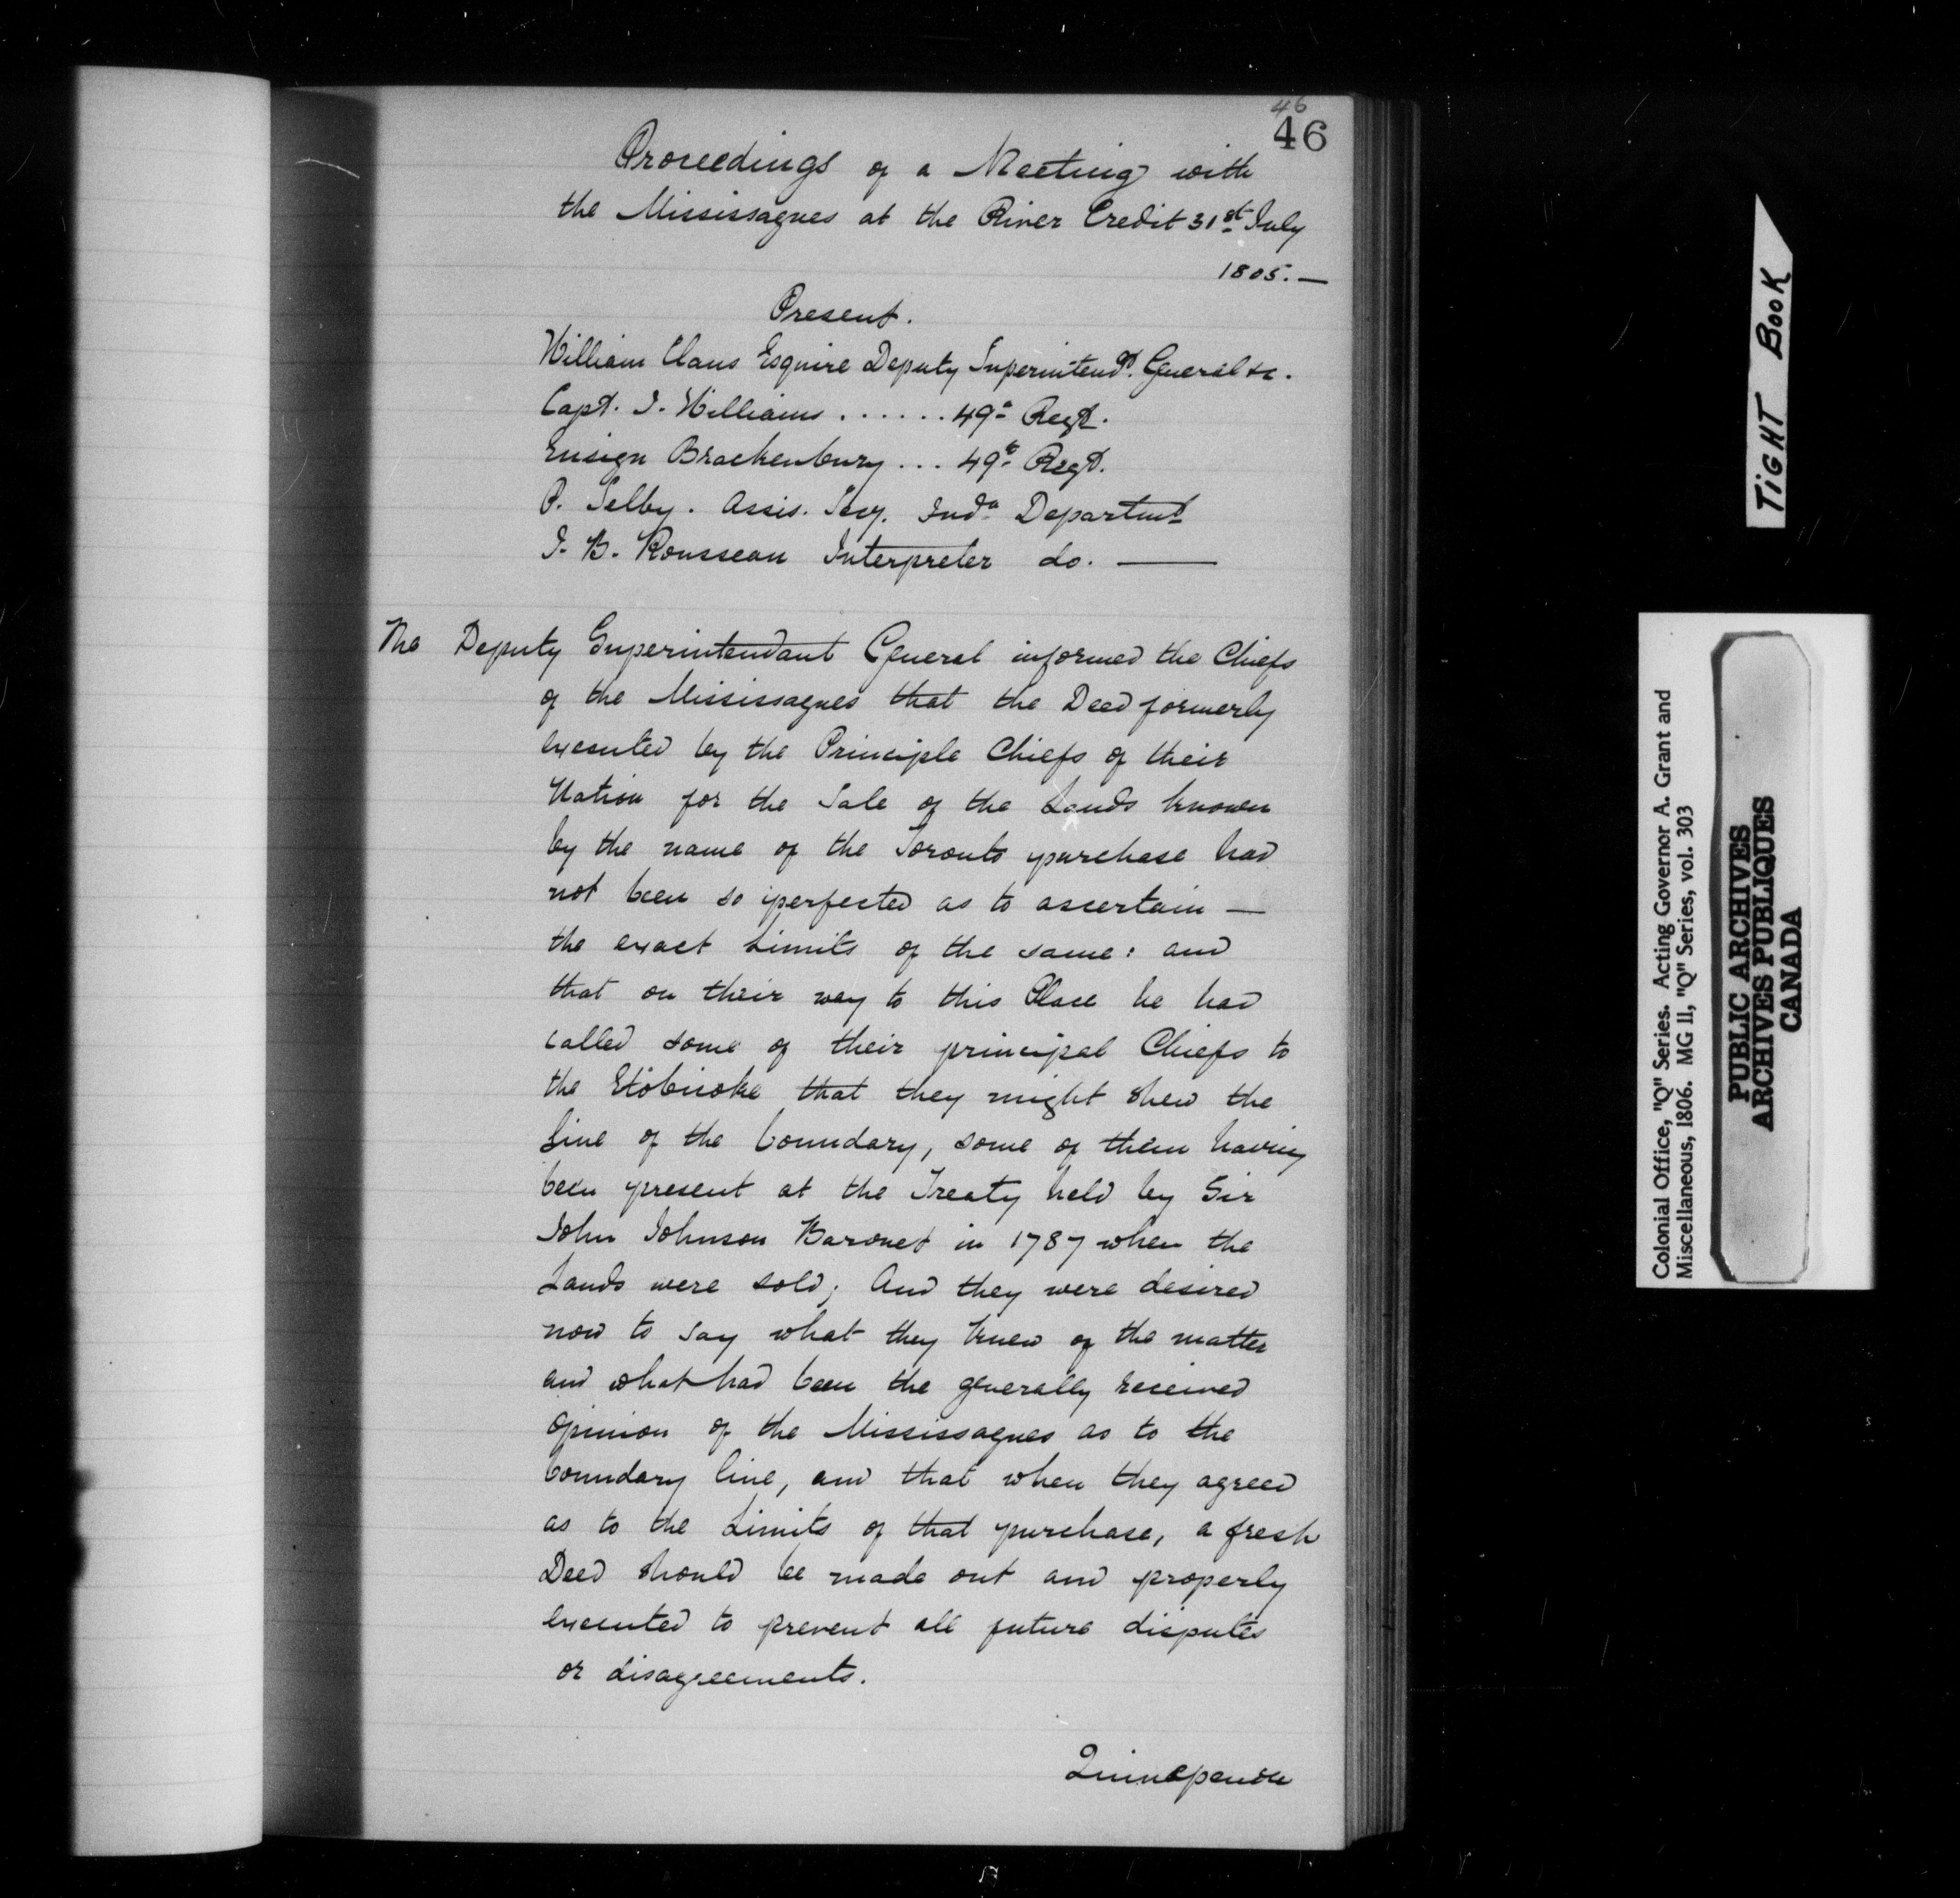 46
46
Proceedings of a Meeting with
the Mississagues at the River Credit 31st July
1805. —
Present.
William Claus Esquire Deputy Superintendt. General &c.
Capt. I. Williams . . . . . . 49th Regt.
Ensign Brackenbury . . . 49th Regt.
P. Selby. Assis. Secy. Inda Departmt
J. B. Rousseau Interpreter do. —
The Deputy Superintendant General informed the Chiefs
of the Mississagues that the Deed formerly
executed by the Principle Chiefs of their
Nation for the Sale of the Lands known
by the name of the Toronto purchase had
not been so perfected as to ascertain —
the exact Limits of the same: and
that on their way to this Place he had
called some of their principal Chiefs to
the Etobicoke that they might shew the
Line of the boundary, some of them having
been present at the Treaty held by Sir
John Johnson Baronet in 1787 when the
Lands were sold; And they were desired
now to say what they knew of the matter
and what had been the generally received
opinion of the Mississagues as to the
boundary line, and that when they agreed
as to the Limits of that purchase, a fresh
Deed should be made out and properly
executed to prevent all future disputes
or disagreements.
Quinepenon
TIGHT BOOK
Colonial Office, "Q" Series. Acting Governor A. Grant and
Miscellaneous, 1806. MG 11, "Q" Series, vol. 303
PUBLIC ARCHIVES
ARCHIVES PUBLIQUES
CANADA